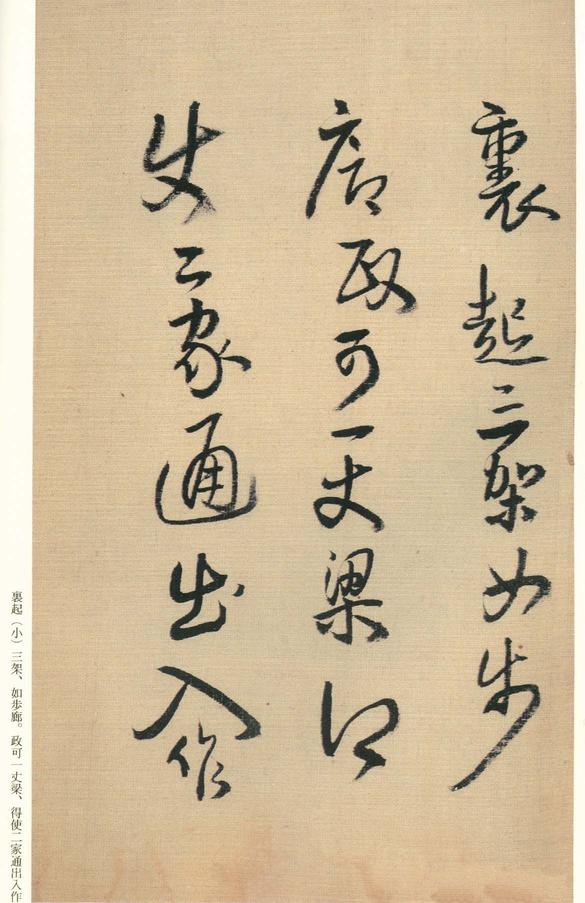 裏起三架如步
廊政可一丈梁得
使二家通出入作
裏起（小）三架、如步廊。政可一丈梁、得使二家通出入作